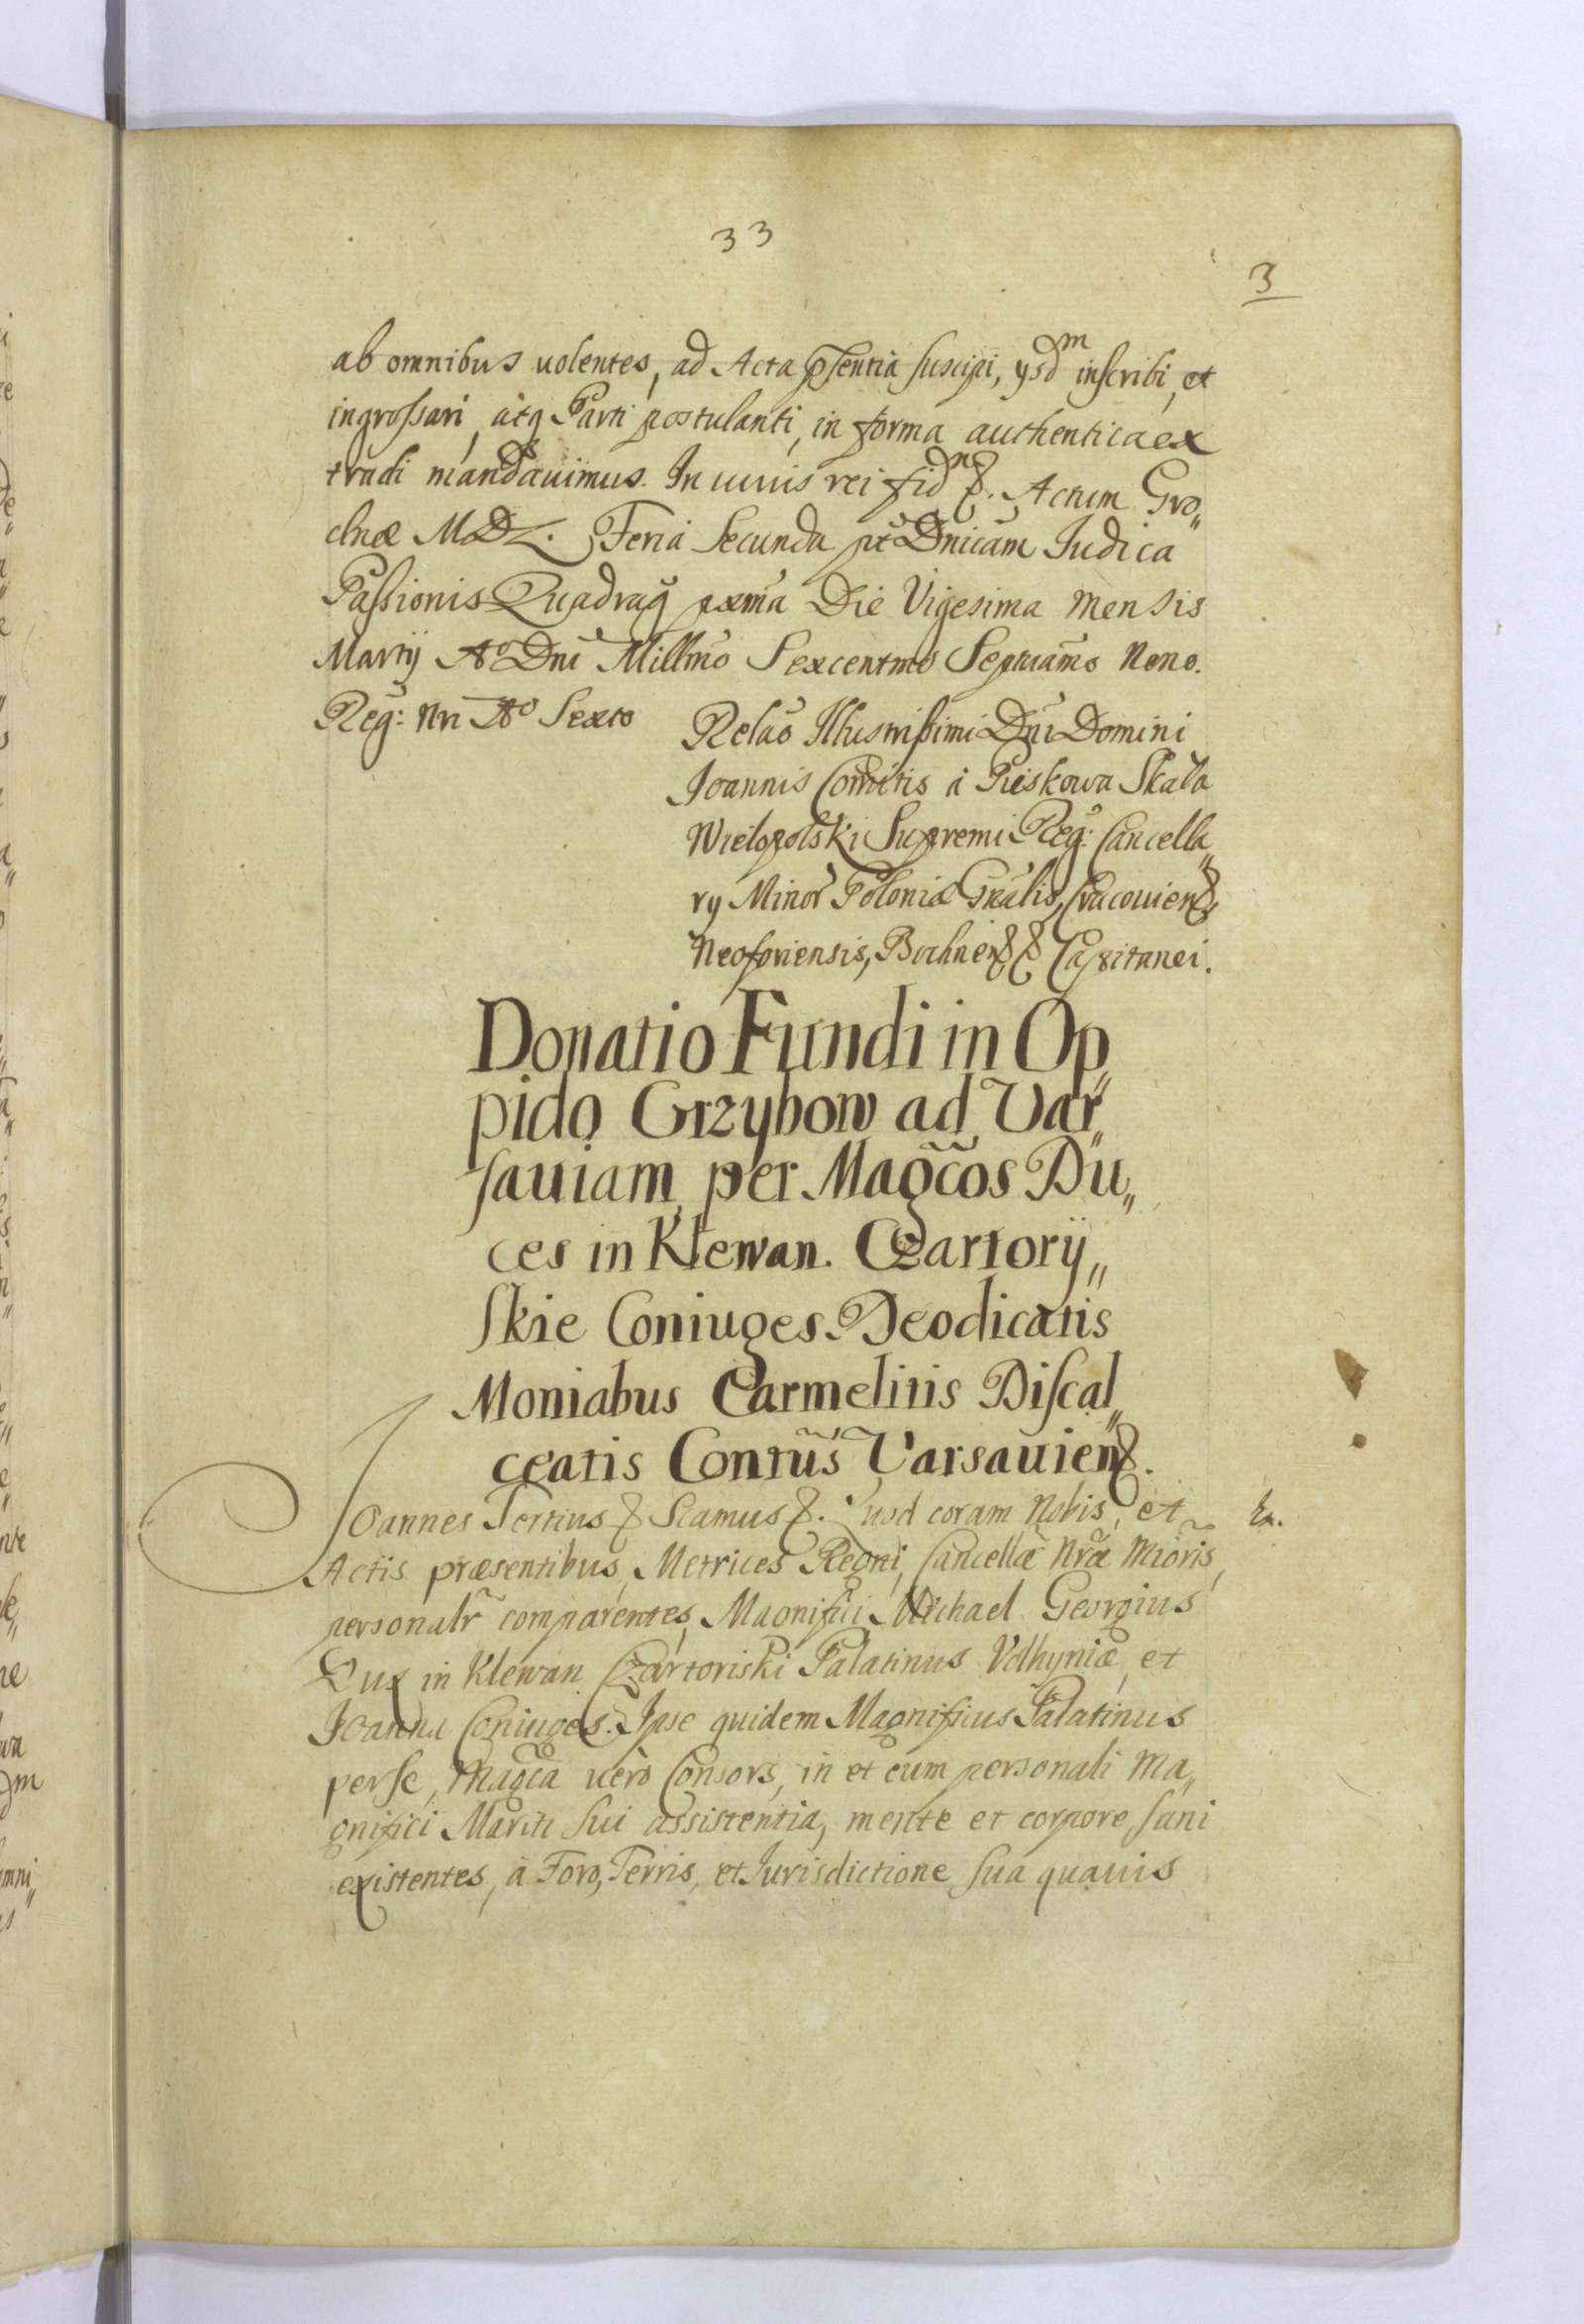 33
3
ab omnibus uolentes, ad Acta p̃sentia suscipi, ysdᵐ inscribi, et
ingrossari, atq̃ Parti postulanti, in forma authentica ex
tradi mandauimus. In cuius rei fidᵐ &. Actum Gro„
dnæ MDL. Feria Secunda pt̃ Dnicam Iudica
Passionis Quadrag̃ pxma Die Vigesima Mensis
Martij Aº Dni Millmo Sexcentmo Septuamo Nono.
Reg̃: Nri Aº Sexto
Relao Illustrissimi Dni Domini
Joannis Comitis à Pieskowa Skała
Wielopolski Supremi Reg̃: Cancella„
ry Minor̃ Poloniæ Gñalis, Cracouien&,
Neoforiensis, Bochnien& & Capitanei.
Donatio Fundi in Op„
pido Grzybow ad Var„
sauiam, per Magc̃os Du„
ces in Klewan. Czartorij„
skie Coniuges Deodicatis
Moniabus Carmelitis Discal„
ceatis Contũs Varsauien&.
Joannes Tertius & Scamus &. Quod coram Nobis, et
Ex.
Actis præsentibus, Metrices Regni, Cancellæ Nræ Mioris,
personalr̃ comparentes, Magnifici Michael Georgius
Dux in Klewan Czartoriski Palatinus Volhyniæ, et
Joanna Coniuges. Ipse quidem Magnificus Palatinus
per se, Magc̃a uerò Consors, in et cum personali Ma„
gnifici Mariti sui assistentia, mente et corpore sani
existentes, à Foro, Terris, et Iurisdictione sua quauis